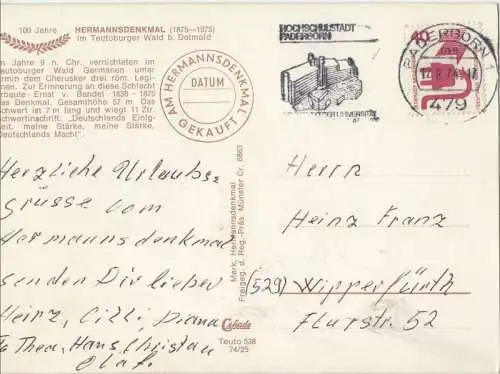 100 Jahre HERMANNSDENKMAL (1875—1975)
im Teutoburger Wald b. Detmold
m Jahre 9 n. Chr. vernichteten im
eutoburger Wald Germanen unter
rmin dem Cherusker drei röm. Legi-
nen. Zur Erinnerung an diese Schlacht
rbaute Ernst v. Bandel 1838 - 1875
as Denkmal. Gesamthöhe 57 m. Das
chwert ist 7 m lang und wiegt 11 Ztr.
chwertinschrift: „Deutschlands Einig-
eit, meine Stärke, meine Stärke,
eutschlands Macht".
AM HERMANNSDENKMAL
DATUM
GEKAUFT
HOCHSCHULSTADT
PADERBORN
PADERBORN 1
12.8.74-17
479
Herzliche Urlaubs-
grüsse vom
Hermannsdenkmal
senden Dir lieber
Heinz, Cilli, Diana
To Thea, Hans Christian
Olaf.
Merk, Hermannsdenkmal
Freigeg. d. Reg.-Präs Münster Cr. 6863
Cekade
Teuto 538
74/25
Herrn
Heinz Franz
(529) Wipperfürth
Flurstr. 52